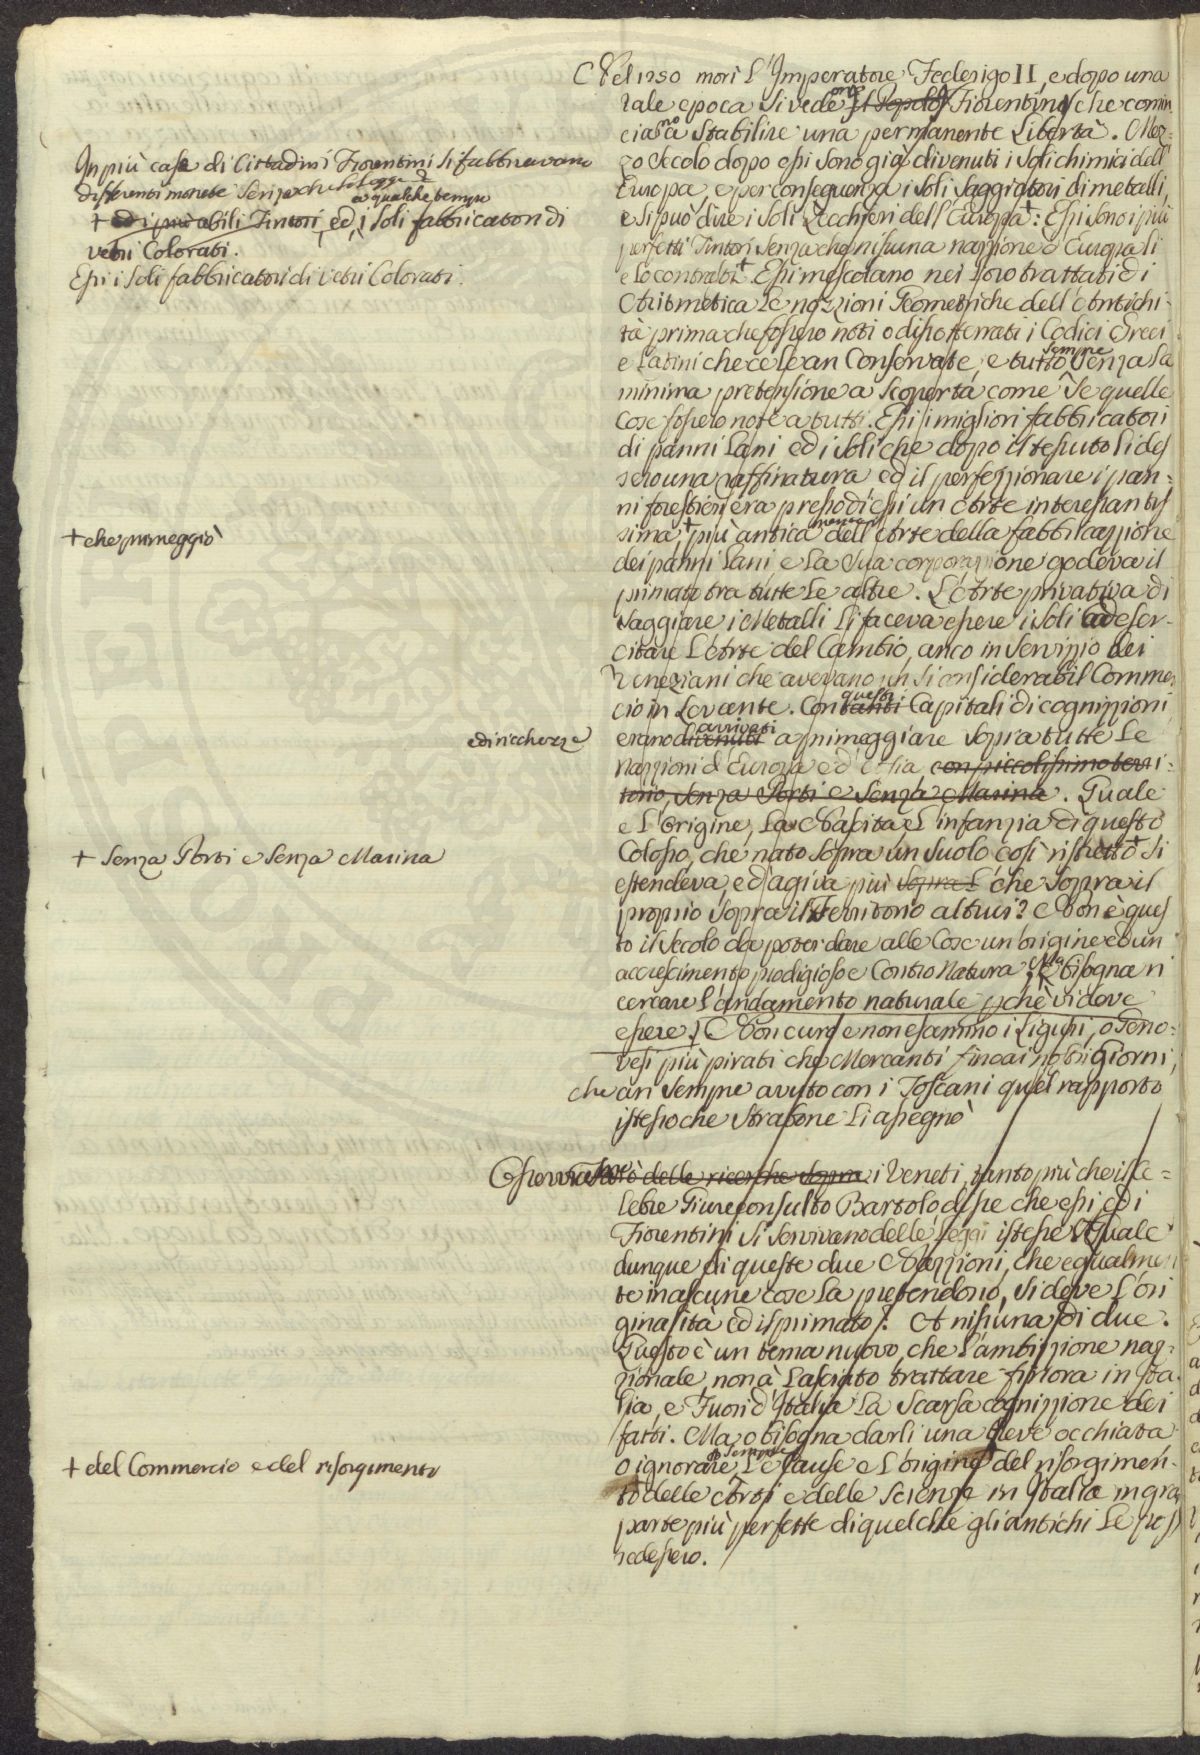 Nel 1250 morì l'Imperatore Federigo II, e dopo una
tale epoca si vede il Popolo Fiorentino che comin
ciano a stabilire una permanente Libertà. Mez-
zo secolo dopo essi sono già divenuti i soli chimici dell'
Europa, e per conseguenza i soli saggiatori di metalli,
e si può dire i soli Zecchieri dell'Europa +: Essi sono i più
perfetti Tintori senza che nissuna nazzione d'Europa li
e lo contrasti +. Essi mescolano nei loro trattati di
Aritmetica le nozzioni Geometriche dell'Antichi-
tà prima che fossero noti o dissotterrati i Codici Greci
e Latini che ce le an Conservate, e tutto sempre senza la
minima pretensione a scoperta come se quelle
cose fossero note a tutti. Essi i migliori fabbricatori
di panni Lani ed i soli che dopo il tessuto li des
sero una raffinatura ed il perfezzionare i pan-
ni forestieri era presso di essi un Arte interessantis
sima, + più anticamente dell'Arte della fabbricazzione
dei panni Lani e la sua corporazzione godeva il
primato tra tutte le altre. L'Arte privativa di
saggiare i Metalli li faceva essere i soli ad eser-
citare l'Arte del Cambio, anco in servizio dei
Veneziani che avevano un sì considerabil Commer
cio in Levante. Con tanti questi Capitali di cognizzioni
ed i ricchezze
erano divenuti arrivati a primeggiare sopra tutte le
nazzioni d'Europa e d'Asia con piccolissimo terri-
torio, senza Porti e senza Marina. Quale
è l'Origine, la Nascita e l'infanzia di questo
Colosso, che nato sopra un suolo così ristretto + si
estendeva, ed agiva più sopra l' che sopra il
proprio sopra il Territorio altrui? Non è ques
to il secolo da poter dare alle Cose un'origine ed un
accrescimento prodigioso e Contro Natura. Ma bisogna ri
cercare l'andamento naturale, perché vi deve
essere. Non curo e non esamino i Liguri, o Geno-
vesi più pirati che Mercanti fino ai nostri Giorni,
che an sempre avuto con i Toscani quel rapporto
istesso che Strabone li assegnò
delle ricerche sopra i Veneti, tanto più che il Ce-
lebre Giureconsulto Bartolo disse che essi ed i
Fiorentini si servivano delle Leggi istesse. Quale
dunque di queste due Nazzioni, che egualmen
te in alcune cose la pretendono, si deve l'ori
ginalità ed il primato? A nissuna di due.
Questo è un tema nuovo, che l'ambizzione naz-
zionale non à lasciato trattare finora in Ita
lia, e Fuori d'Italia la scarsa cognizzione dei
fatti. Ma o bisogna darli una breve occhiata
o ignorare sempre le cause e l'origine del risorgimen-
to delle Arti e delle Scienze in Italia in gran
parte più perfette di quel che gli antichi le pos
sedessero.
In più case di Cittadini Fiorentini si fabbricavano
differenti monete senza che la Legge
a qualche tempo
+ ed i più abili Tintori, ed i soli fabbricatori di
vetri Colorati.
Essi i soli fabbricatori di Vetri Colorati.
+ che primeggiò
+ senza Porti e senza Marina
+ del Commercio e del risorgimento